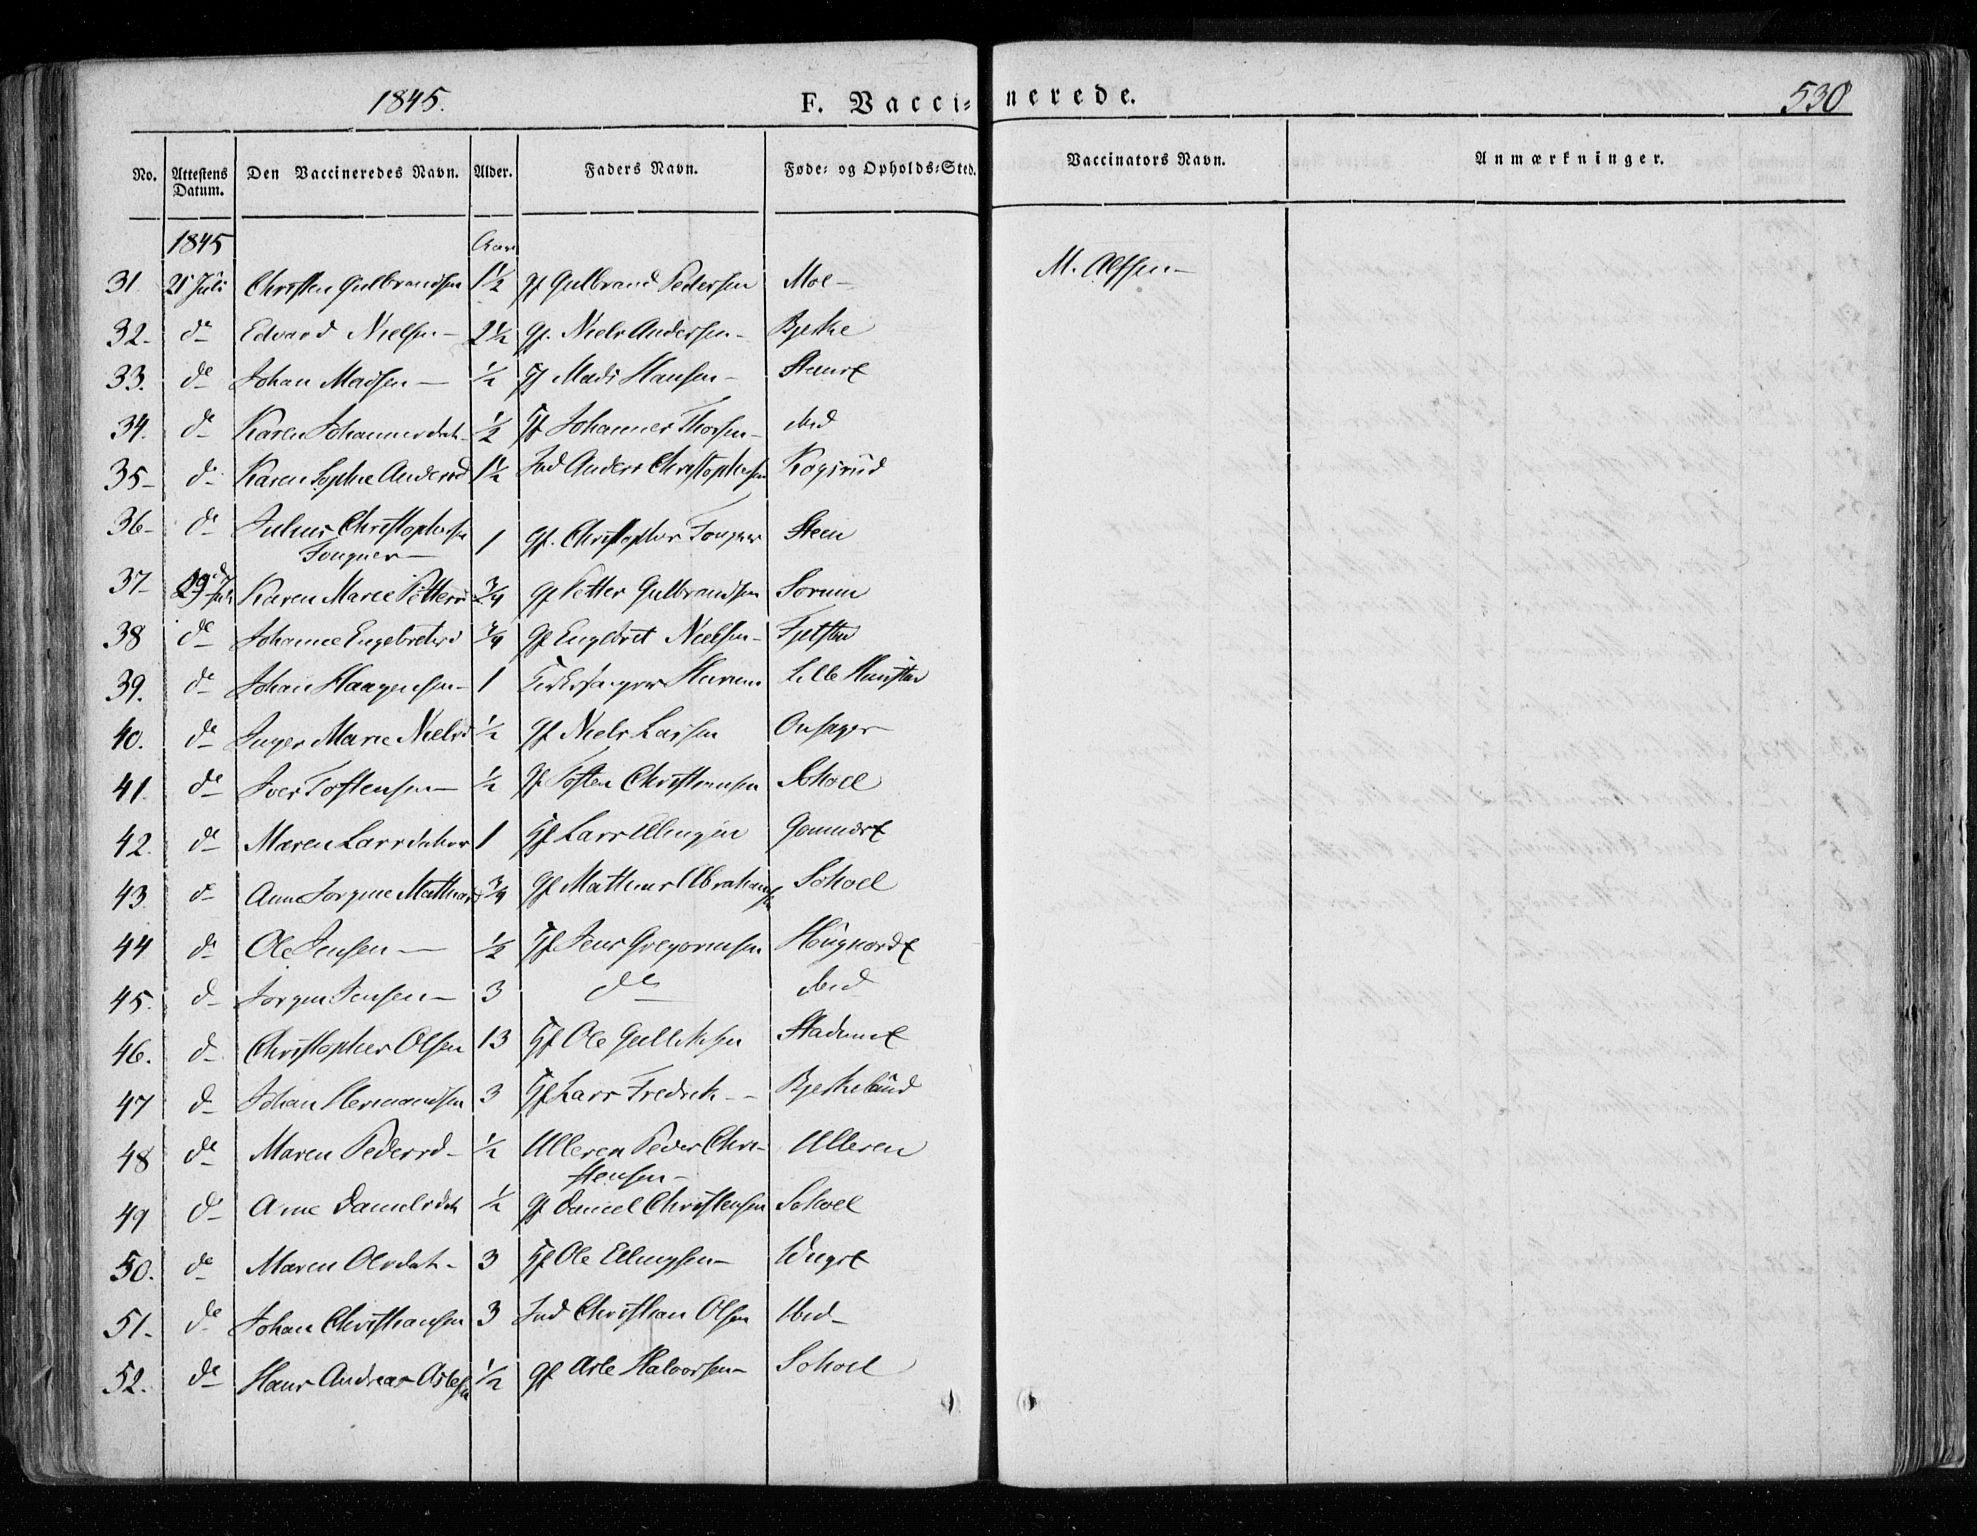 1845. F. Vacci-nerede. 530
No. Attestens Datum. Den Vaccineredes Navn. Alder. Faders Navn. Føde- og Opholds-Sted. Vaccinators Navn. Anmærkninger.
1845 Aar
31. 21 Juli Christen Gulbrandsen 1½ Gf Gulbrand Pedersen Moe M. Alfsen
32. do Edvard Nielsen 2½ Gf. Niels Andersen Bjerke
33. do Johan Madsen ½ Hf Mads Hansen
34. do Karen Johannesdat. ½ Hf Johannes Thorsen ibid
35 do Karen Sophie Andersd 1½ Ind Anders Christophersen Kogsrud
36 do Julius Christophersen
Fougner 1 Gf. Christopher Fougner Steen
37 Karen Marie Petters ¾ Gf Petter Gulbrandsen Sorum
38 do Johanne Engebretsd ¾ Gf Engebret Nielsen
39. do Johan Haagensen 1 Kirkesanger Lille
40. do Inger Marie Nielsd ½ Gf Niels Larsen Onsager
41 do Iver Tostensen ½ Gf Tosten Christiansen
42. do Maren Larsdatter 1 Hf Lars Ellingsen
43. do Anne Jorgine Mathiasd ¾ Gf Mathias Abrahamsen
44 do Ole Jensen ½ Hf Jens Gregoriusen
45. do Jorgen Jensen 3 do ibid
46. do Christopher Olsen 13 Hf Ole Gulliksen
47 do Johan Hermandsen 3 Hf Lars Fredrik Bjerkelund
48 do Maren Pedersd ½ Ulleren Peder Chri-
stensen Ulleren
49 do Anne Danielsdat ½ Gf Daniel Christensen
50. do Maren Olsdat 3 Hf Ole Ellingsen
51. do Johan Christiansen 3 Ind Christian Olsen ibid
52. do Hans Andreas Aslesen ½ Gf Asle Halvorsen